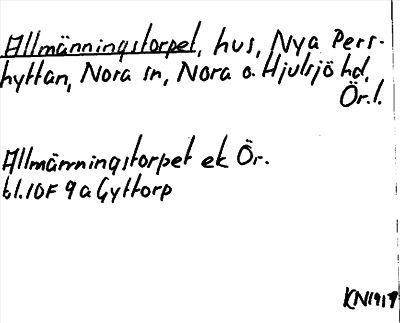 Allmänningstorpet, hus, Nya Pers-
hyttan, Nora sn, Nora o. Hjulsjö hd,
Ör.l.
Allmänningstorpet ek Ör.
bl.10F 9a Gyttorp
KN1919